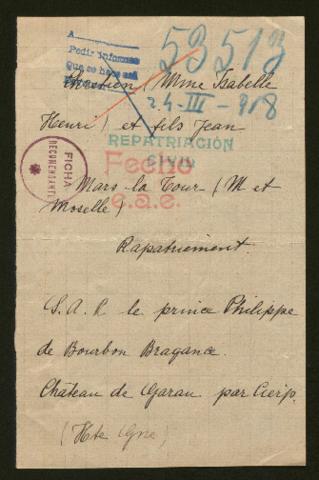 A
Pedir informe
Que se haga
53513
(Mme Isabelle
24-III-918
Henri) et fils Jean
REPATRIACIÓN
CIVIL
FICHA
RECOMENDANTE
Fecho
e.a.e.
Mars la Tour (M et
Moselle)
Rapatriement.
S. A. R le prince Philippe
de Bourbon Bragance.
Château de Garau par Cierp.
(Hte Gne)